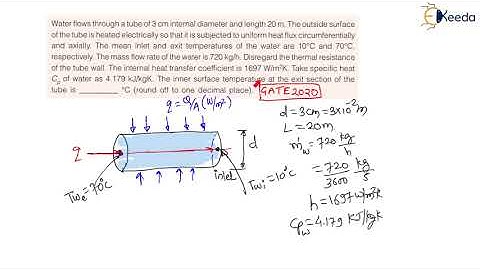 Ekeeda
Water flows through a tube of 3 cm internal diameter and length 20 m. The outside surface
of the tube is heated electrically so that it is subjected to uniform heat flux circumferentially
and axially. The mean inlet and exit temperatures of the water are 10°C and 70°C,
respectively. The mass flow rate of the water is 720 kg/h. Disregard the thermal resistance
of the tube wall. The internal heat transfer coefficient is 1697 W/m²K. Take specific heat
Cp of water as 4.179 kJ/kgK. The inner surface temperature at the exit section of the
tube is ________ °C (round off to one decimal place). GATE2020
q = Q/A (W/m²)
d
q
Twe = 70°C
inlet
Twi = 10°C
d = 3cm = 3×10⁻²m
L = 20m
ṁw = 720 kg/h
= 720/3600 kg/s
h = 1697 W/m²K
Cpw = 4.179 KJ/kgK